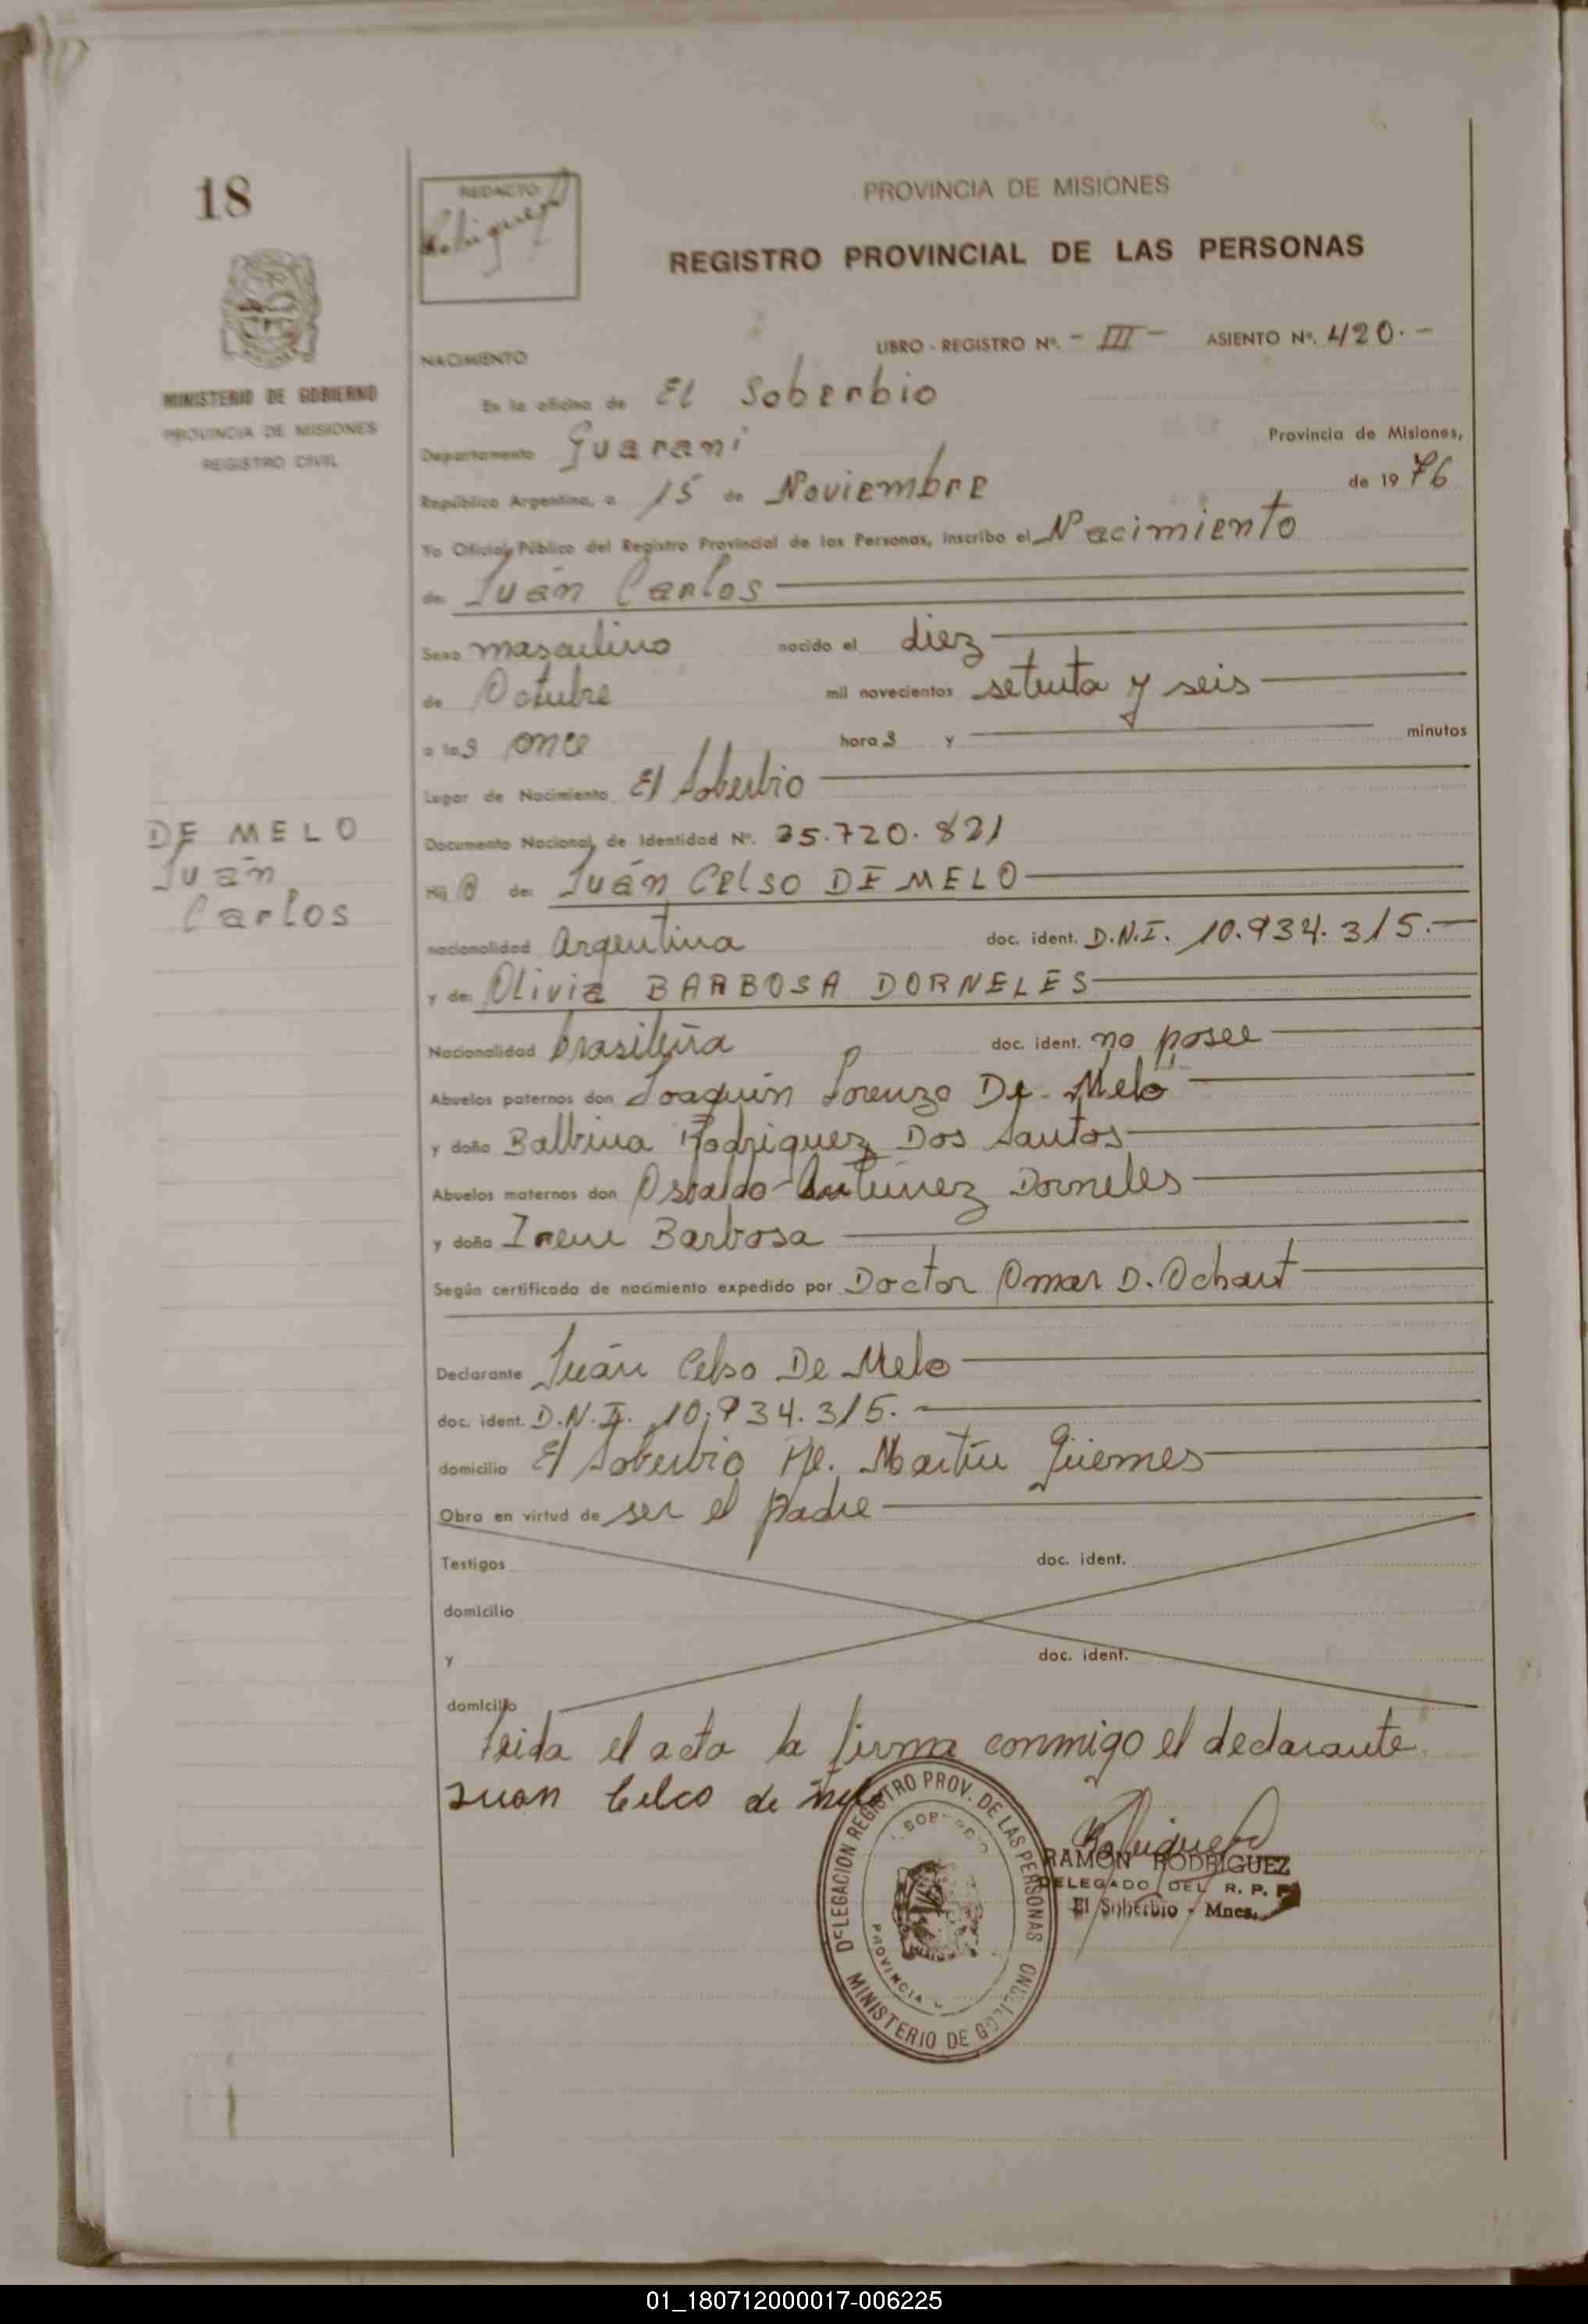 18
REDACTO
Rodriguez
PROVINCIA DE MISIONES
REGISTRO PROVINCIAL DE LAS PERSONAS
MINISTERIO DE GOBIERNO
PROVINCIA DE MISIONES
REGISTRO CIVIL
LIBRO - REGISTRO Nº. - III - ASIENTO Nº. 420. -
NACIMIENTO
En la oficina de El Soberbio
Departamento Guarani Provincia de Misiones,
República Argentina, a 15 de Noviembre de 1976
Yo Oficial Público del Registro Provincial de las Personas, inscribo el Nacimiento
de: Juán Carlos
Sexo masculino nacido el diez
de Octubre mil novecientos setenta y seis
a las once horas y minutos
Lugar de Nacimiento El Soberbio
DE MELO
Juán
Carlos
Documento Nacional de Identidad Nº. 25.720.821
Hijo de: Juán Celso DE MELO
nacionalidad Argentina doc. ident. D.N.I. 10.934.315.-
y de: Olivia BARBOSA DORNELES
Nacionalidad brasileña doc. ident. no posee
Abuelos paternos don Joaquín Lorenzo De Melo
y doña Balbina Rodriguez Dos Santos
Abuelos maternos don Osvaldo Antunez Dorneles
y doña Irene Barbosa
Según certificado de nacimiento expedido por Doctor Omar D. Ochaut
Declarante Juán Celso De Melo
doc. ident. D.N.I. 10.934.315.-
domicilio El Soberbio Me. Martín Güemes
Obra en virtud de ser el padre
Testigos doc. ident.
domicilio
y doc. ident.
domicilio
leida el acta la firma conmigo el declarante.
Juan Celco de melo
DELEGACION REGISTRO PROV. DE LAS PERSONAS
PROVINCIA
MINISTERIO DE GOBIERNO
RAMÓN RODRIGUEZ
DELEGADO DEL R. P. P.
El Soberbio - Mnes.
01_180712000017-006225